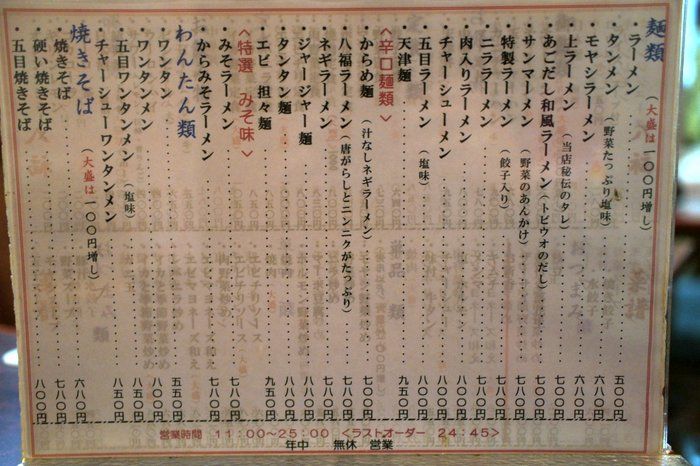 麺類 (大盛は一〇〇円増し)
・ラーメン 五〇〇円
・タンメン(野菜たっぷり塩味) 六八〇円
・モヤシラーメン 六八〇円
・上ラーメン(当店秘伝のタレ) 七〇〇円
・あごだし和風ラーメン(トビウオのだし) 七〇〇円
・サンマーメン(野菜のあんかけ) 七八〇円
・特製ラーメン(餃子入り) 七八〇円
・ニララーメン 七八〇円
・肉入りラーメン 八〇〇円
・チャーシューメン 八〇〇円
・五目ラーメン(塩味) 八〇〇円
・天津麺 九五〇円
<辛口麺類>
・からめ麺(汁なしネギラーメン) 七〇〇円
・八福ラーメン(唐がらしとニンニクがたっぷり) 七八〇円
・ネギラーメン 七八〇円
・ジャージャー麺 八八〇円
・タンタン麺 八八〇円
・エビ 担々麺 九五〇円
<特選 みそ味>
・みそラーメン 七八〇円
・からみそラーメン 七八〇円
わんたん類
・ワンタン 五五〇円
・ワンタンメン 八〇〇円
・五目ワンタンメン(塩味) 八五〇円
・チャーシューワンタンメン 八五〇円
焼きそば (大盛は一〇〇円増し)
・焼きそば 六八〇円
・硬い焼きそば 七八〇円
・五目焼きそば 八〇〇円
営業時間 11:00~25:00 <ラストオーダー 24:45>
年中 無休 営業